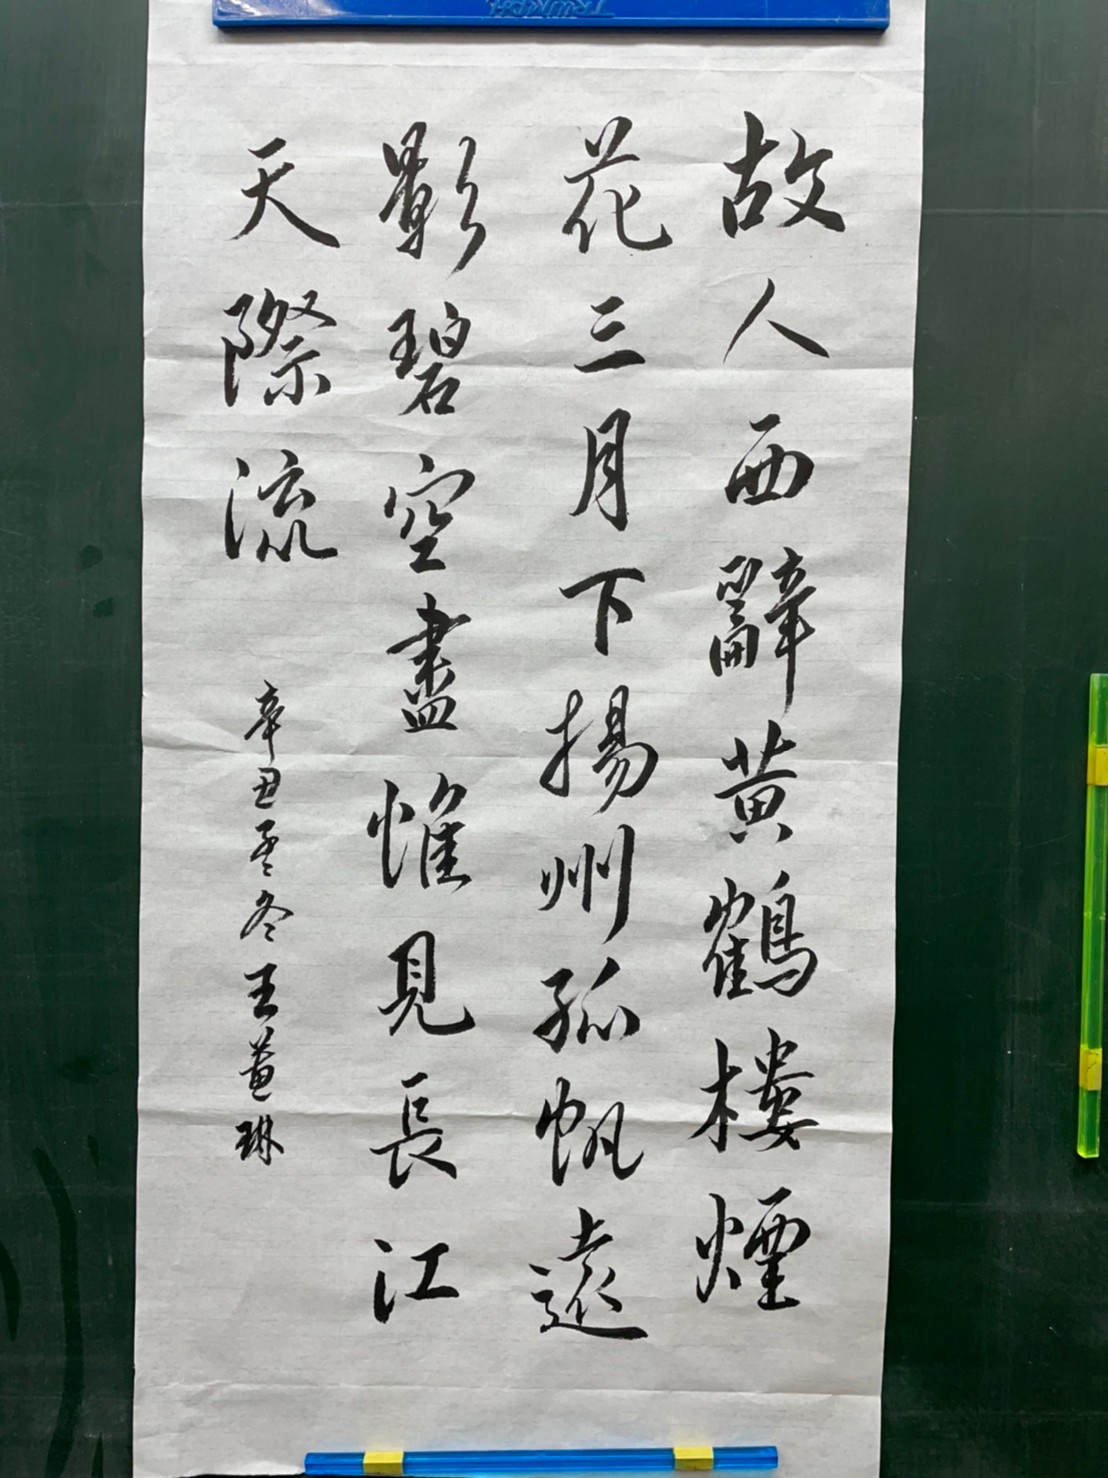 故人西辭黃鶴樓煙
花三月下揚州孤帆遠
影碧空盡惟見長江
天際流
辛丑孟冬王萱琳